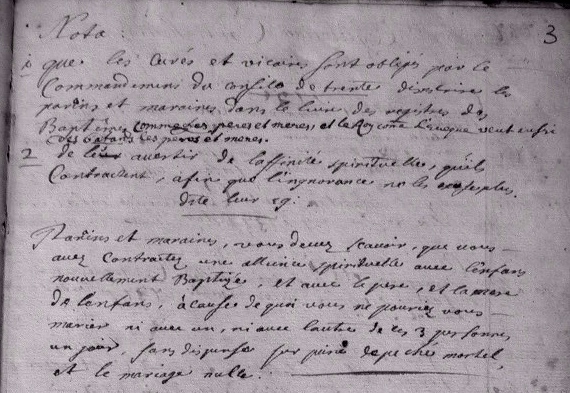 3
Nota :
1 que les Curés et vicaires sont obligés par le
Commandement du consile de trente d'escrire les
parins et maraines dans le livre des registres des
Baptêmes comme les peres et meres, et le Roy comme l'eveque veut
des les peres et meres.
2 de leur avertir de l'affinité spirituelle, qu'ils
Contractent, afin que l'ingnorance ne les excuse plus.
dite leur
Parins et maraines, vous devez scavoir, que vous
avez Contractez une allience spirituelle avec l'enfans
nouvellement Baptizé, et avec le pere, et la mere
de l'enfans, à cause de quoi vous ne pouriez vous
marier ni avec un, ni avec l'autre de ces 3 personnes
un jour, sans dispense sur peine de peché mortel,
et le mariage nulle.